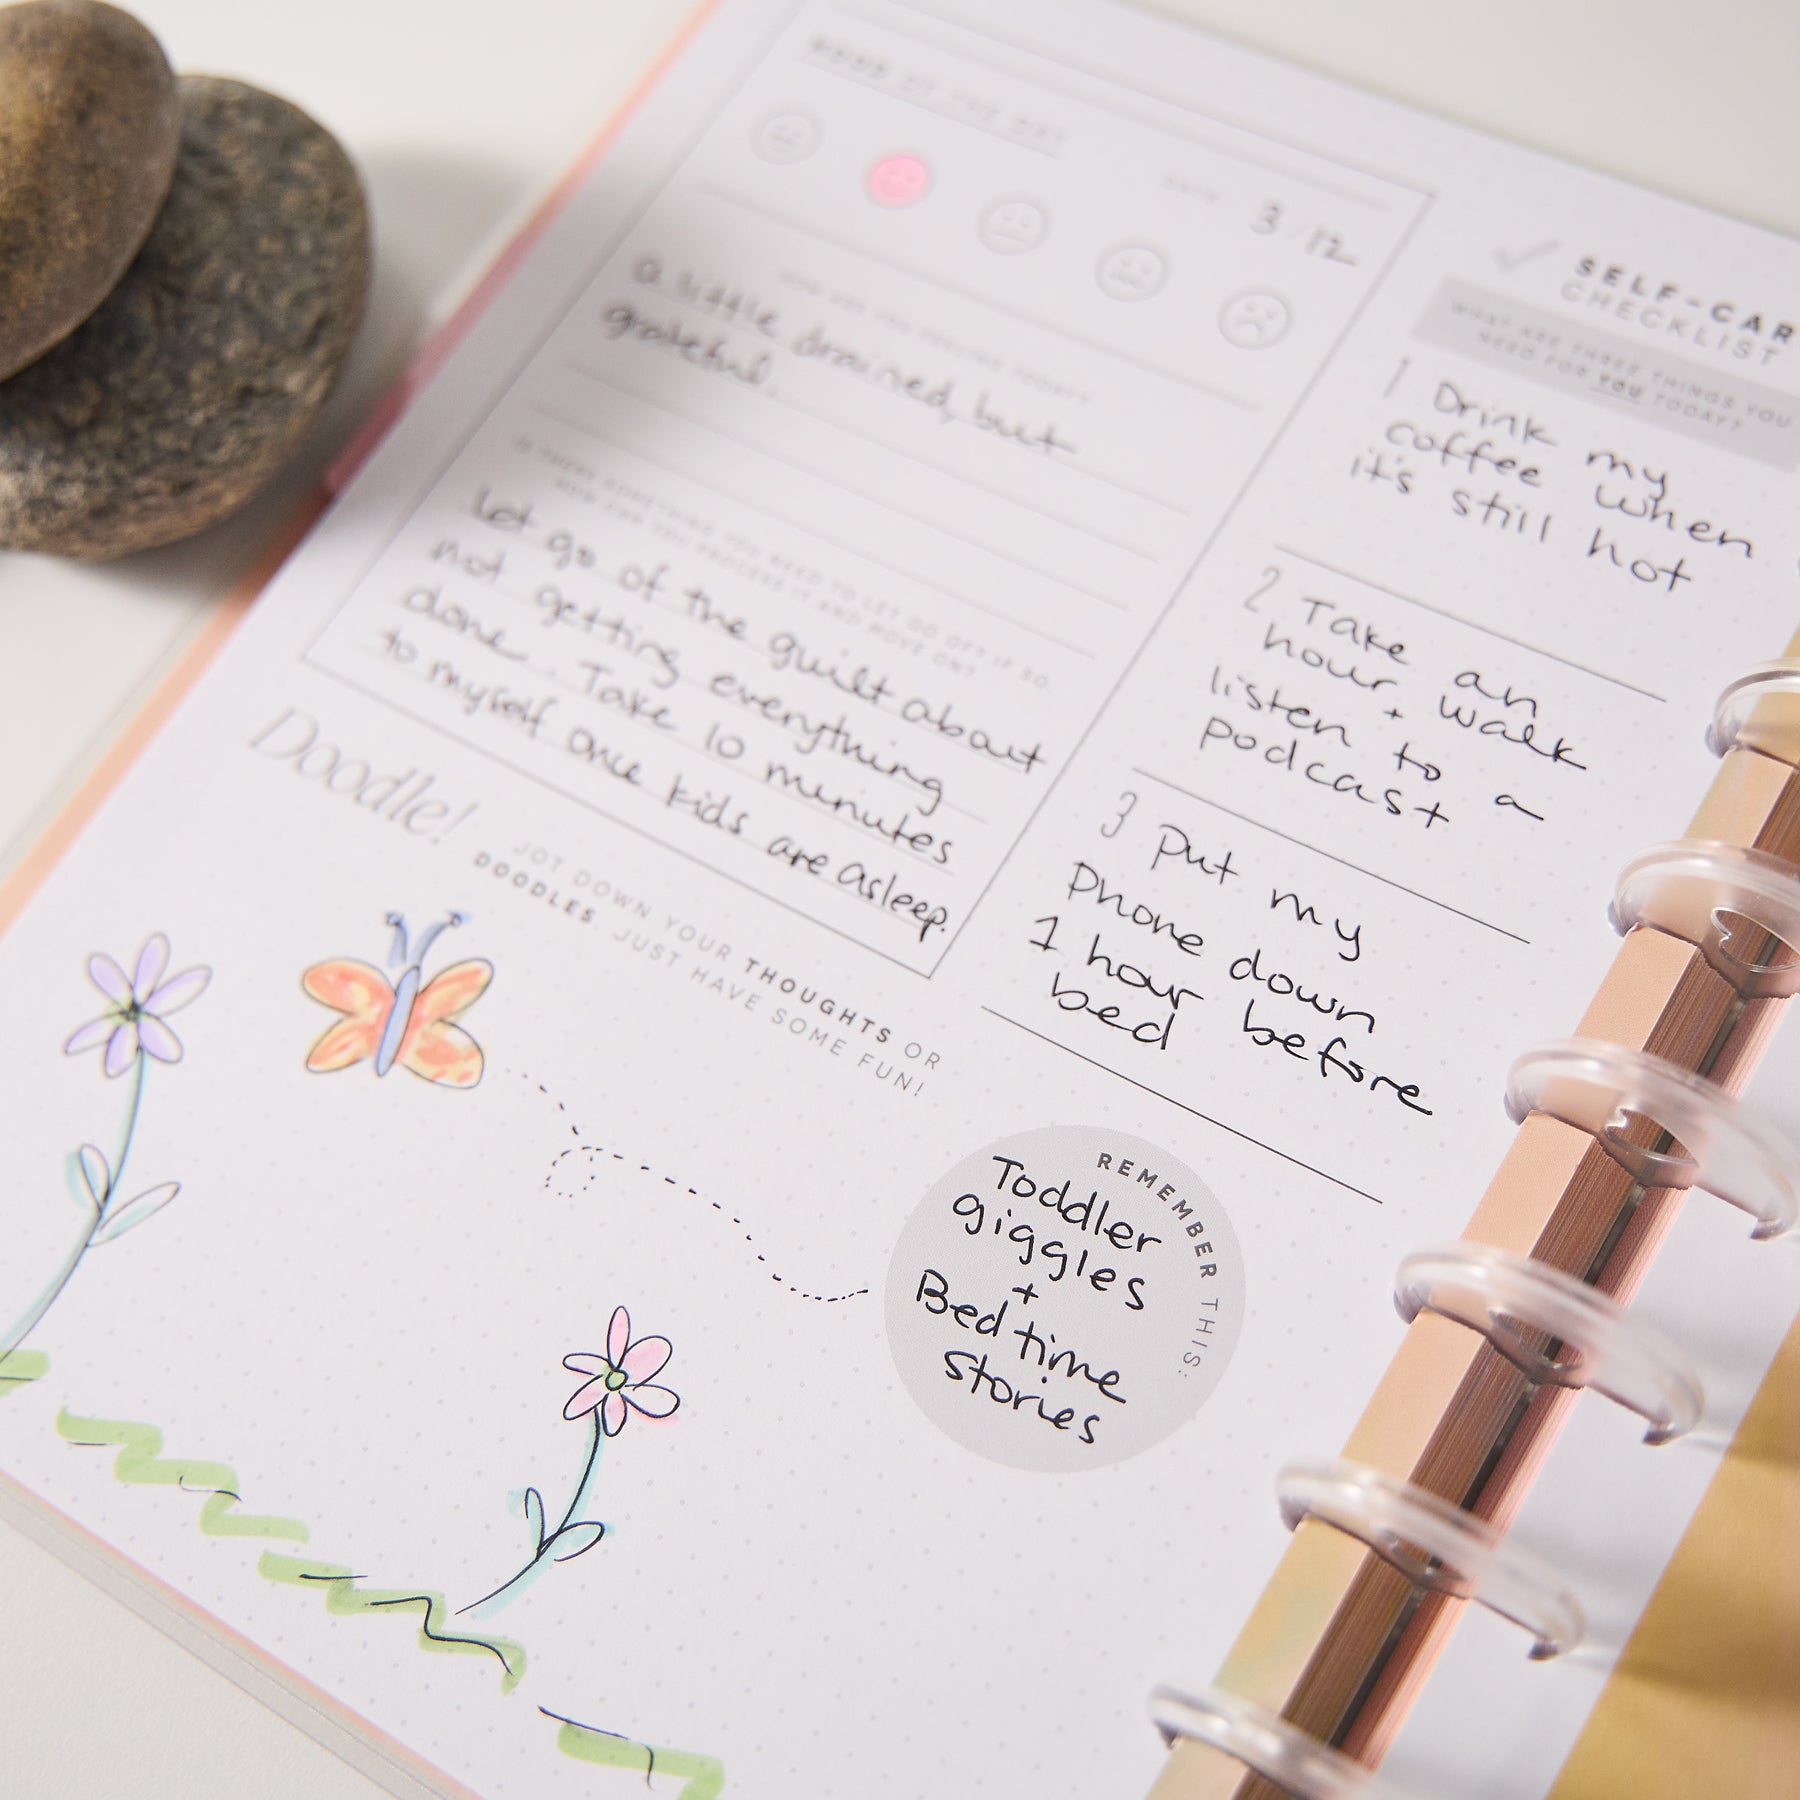 MOOD OF THE DAY
DATE 3/12
HOW ARE YOU FEELING TODAY?
a little drained, but
grateful.
IS THERE SOMETHING YOU NEED TO LET GO OF? IF SO,
HOW CAN YOU PROCESS IT AND MOVE ON?
Let go of the guilt about
not getting everything
done. Take 10 minutes
to myself once kids are asleep.
Doodle!
JOT DOWN YOUR THOUGHTS OR
DOODLES. JUST HAVE SOME FUN!
SELF-CAR
CHECKLIST
WHAT ARE THREE THINGS YOU
NEED FOR YOU TODAY?
1 Drink my
coffee when
it's still hot
2 Take an
hour + walk
listen to a
podcast
3 Put my
Phone down
1 hour before
bed
REMEMBER THIS:
Toddler
giggles
+
Bedtime
Stories